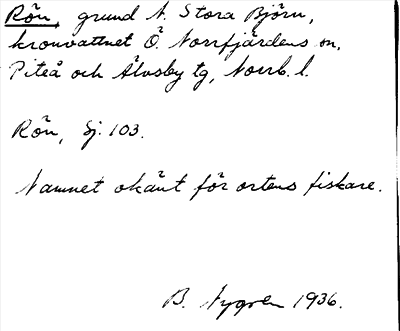 Rön, grund N. Stora Björn,
kronvattnet Ö. Norrfjärdens sn,
Piteå och Älvsby tg, Norrb. l.
Rön, Sj. 103.
Namnet okänt för ortens fiskare.
B. Nygren 1936.